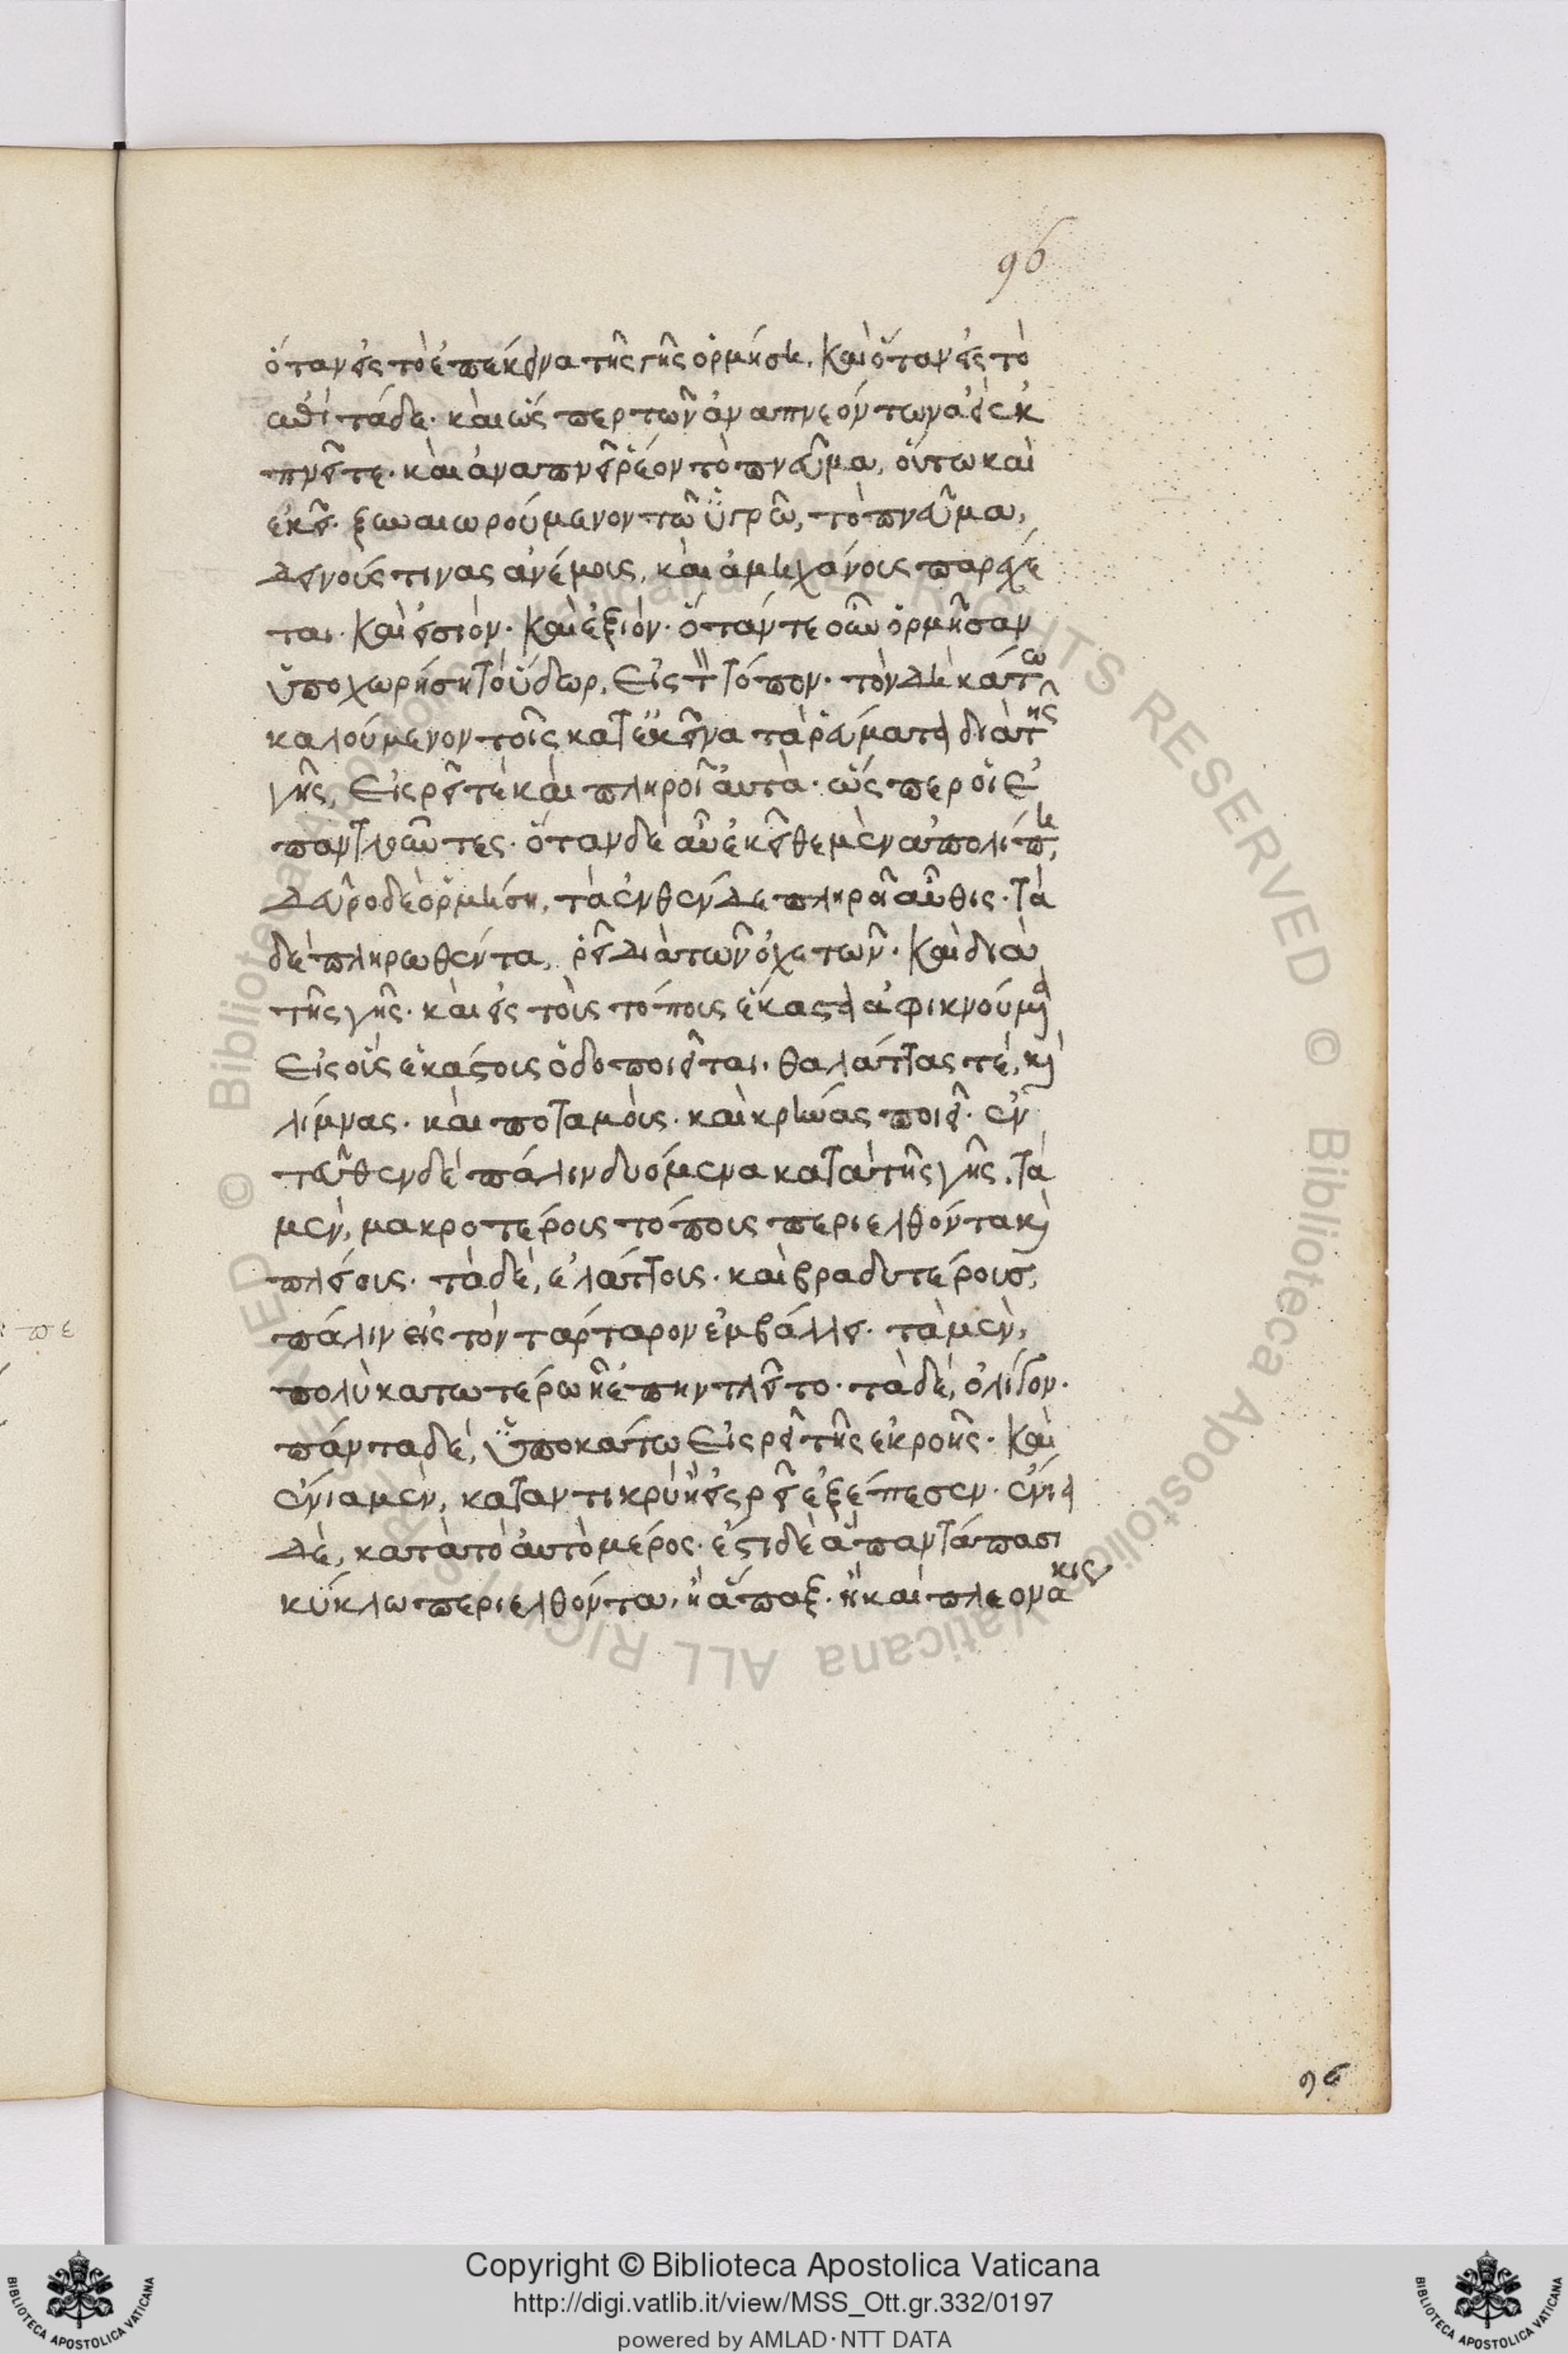 96
ὅταν εἰς τὸ ἐπέκεινα τῆς γῆς ὁρμήση. καὶ ὅταν εἰς τὸ
ἐπὶ τάδε. καὶ ὥσπερ τῶν ἀναπνεόντων ἀεὶ ἐκ
πνεῖ τε. καὶ ἀναπνεῖ ῥέον τὸ πνεῦμα, οὕτω καὶ
ἐκεῖ. ξυναιωρούμενον τῶ ὑγρῶ, τὸ πνεῦμα,
δεινούς τινας ἀνέμοις, καὶ ἀμηχάνοις παρέχε
ται. καὶ εἰσιόν. καὶ ἐξιόν. ὅταν τε οὖν ὁρμῆσαν
ὑποχωρήση τὸ ὕδωρ, εἰς τ τόπον. τὸν δὴ κάτω
καλούμενον τοῖς κατ ἐκεῖνα τὰ ῥεύματα διὰ τῆς
γῆς, εἰσρεῖ τὲ καὶ πληροῖ ἀυτὰ. ὥσπερ οἱ ἐ
παντλοῦντες. ὅταν δὲ αὖ ἐκεῖθε μὲν ἀπολίπη,
δεῦρο δὲ ὁρμήση, τὰ ἐνθένδε πληροῖ αὖθις. τὰ
δὲ πληρωθέντα, ῥεῖ διὰ τῶν ὀχετῶν. καὶ διὰ
τῆς γῆς. καὶ εἰς τοὺς τόποις ἕκαστα ἀφικνούμενα
εἰς οἷς ἑκάστοις ὁδοποιεῖται. θαλάττας τέ, καὶ
λίμνας. καὶ ποταμοὺς. καὶ κρήνας ποιεῖ. ἐν
τεῦθεν δὲ πάλιν δυόμενα κατὰ τῆς γῆς. τὰ
μὲν, μακροτέροις τόποις περιελθόντα καὶ
πλείοις. τὰ δὲ, ἐλάττοις. καὶ βραδυτέρους,
πάλιν εἰς τὸν τάρταρον ἐμβάλλει. τὰ μὲν,
πολὺ κατωτέρω ἢ ἐπηντλεῖτο. τὰ δὲ, ὀλίγον.
πάντα δὲ, ὑποκάτω εἰσρεῖ τῆς ἐκροῆς. καὶ
ἔνια μὲν, καταντικρὺ ἧ εἰσρεῖ ἐξέπεσεν. ἔνια
δὲ, κατὰ τὸ ἀυτὸ μέρος. ἔστι δὲ ἃ παντάπασι
κύκλω περιελθόντα, ἢ ἅπαξ. ἢ καὶ πλεονάκις
96
Copyright © Biblioteca Apostolica Vaticana
http://digi.vatlib.it/view/MSS_Ott.gr.332/0197
powered by AMLAD·NTT DATA